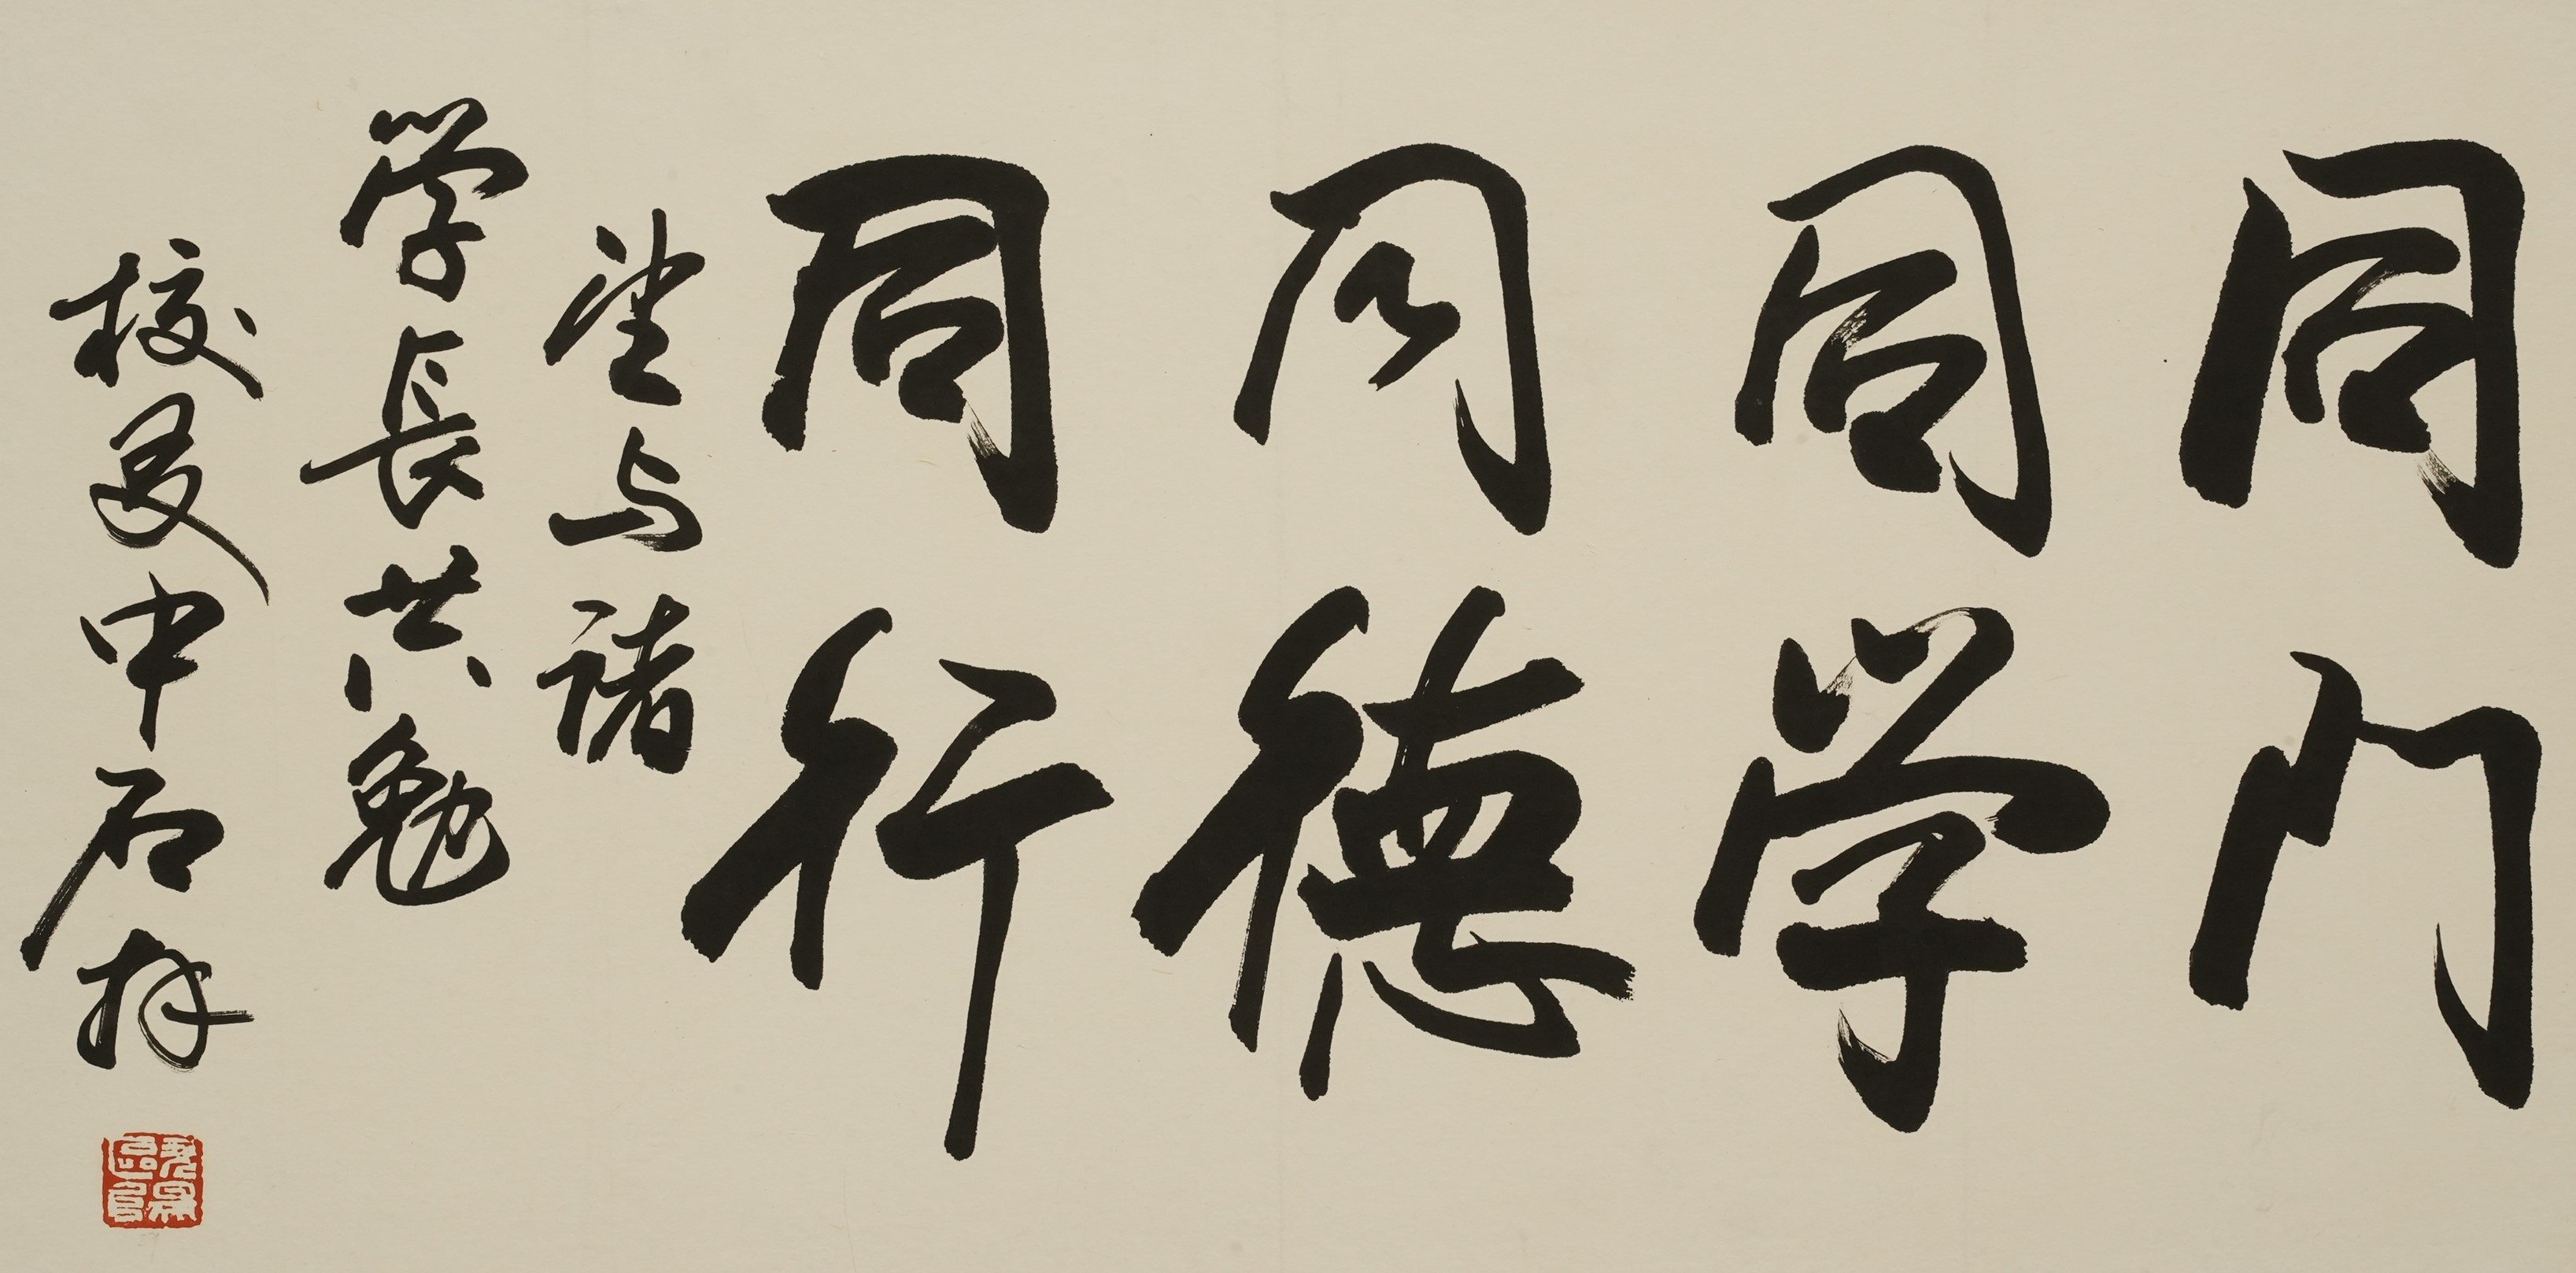 同门
同学
同德
同行
望与诸
学长共勉
校友中石拜